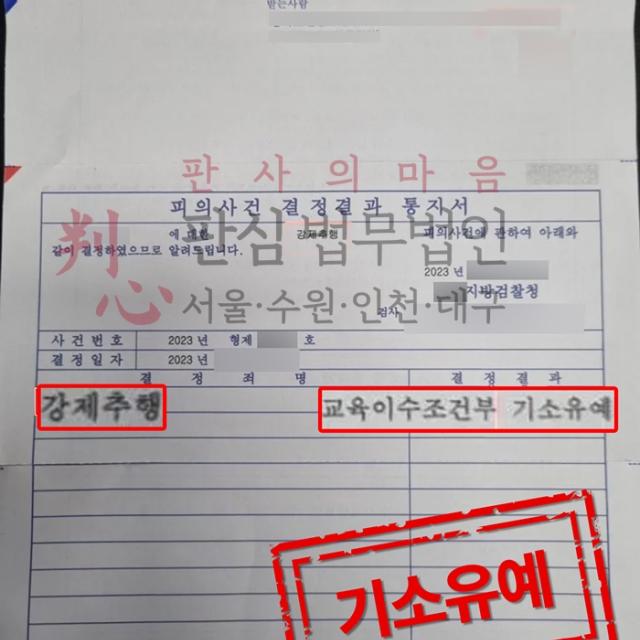 받는사람
판사의 마음
피의사건 결정결과 통지서
에 대한 강제추행 피의사건에 관하여 아래와
같이 결정하였으므로 알려드립니다.
判心 판심 법무법인
2023 년
지방검찰청
서울·수원·인천·대구
검사
사건번호 2023 년 형제 호
결정일자 2023 년
결 정 죄 명 결 정 결 과
강제추행 교육이수조건부 기소유예
기소유예